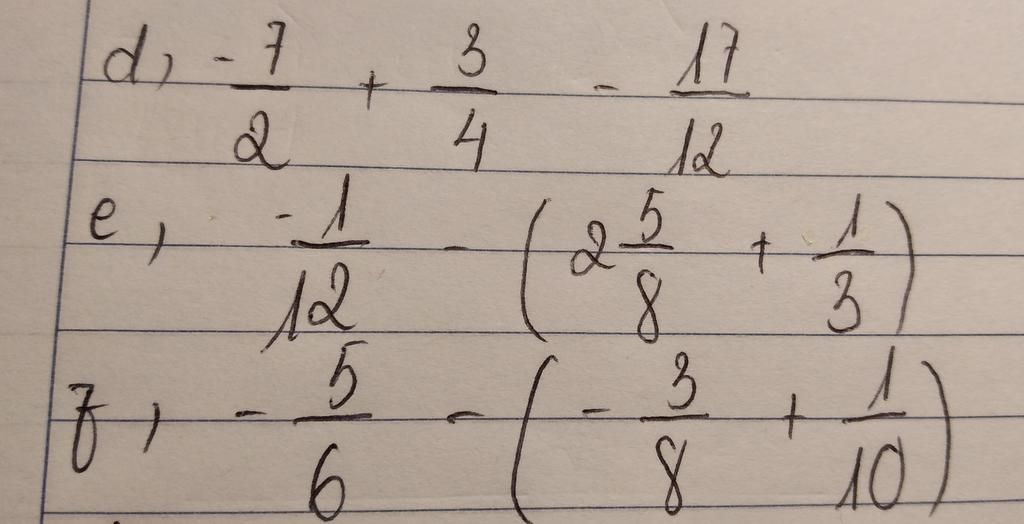 d, -7/2 + 3/4 - 17/12
e, -1/12 - (2 5/8 + 1/3)
f, - 5/6 - (- 3/8 + 1/10)